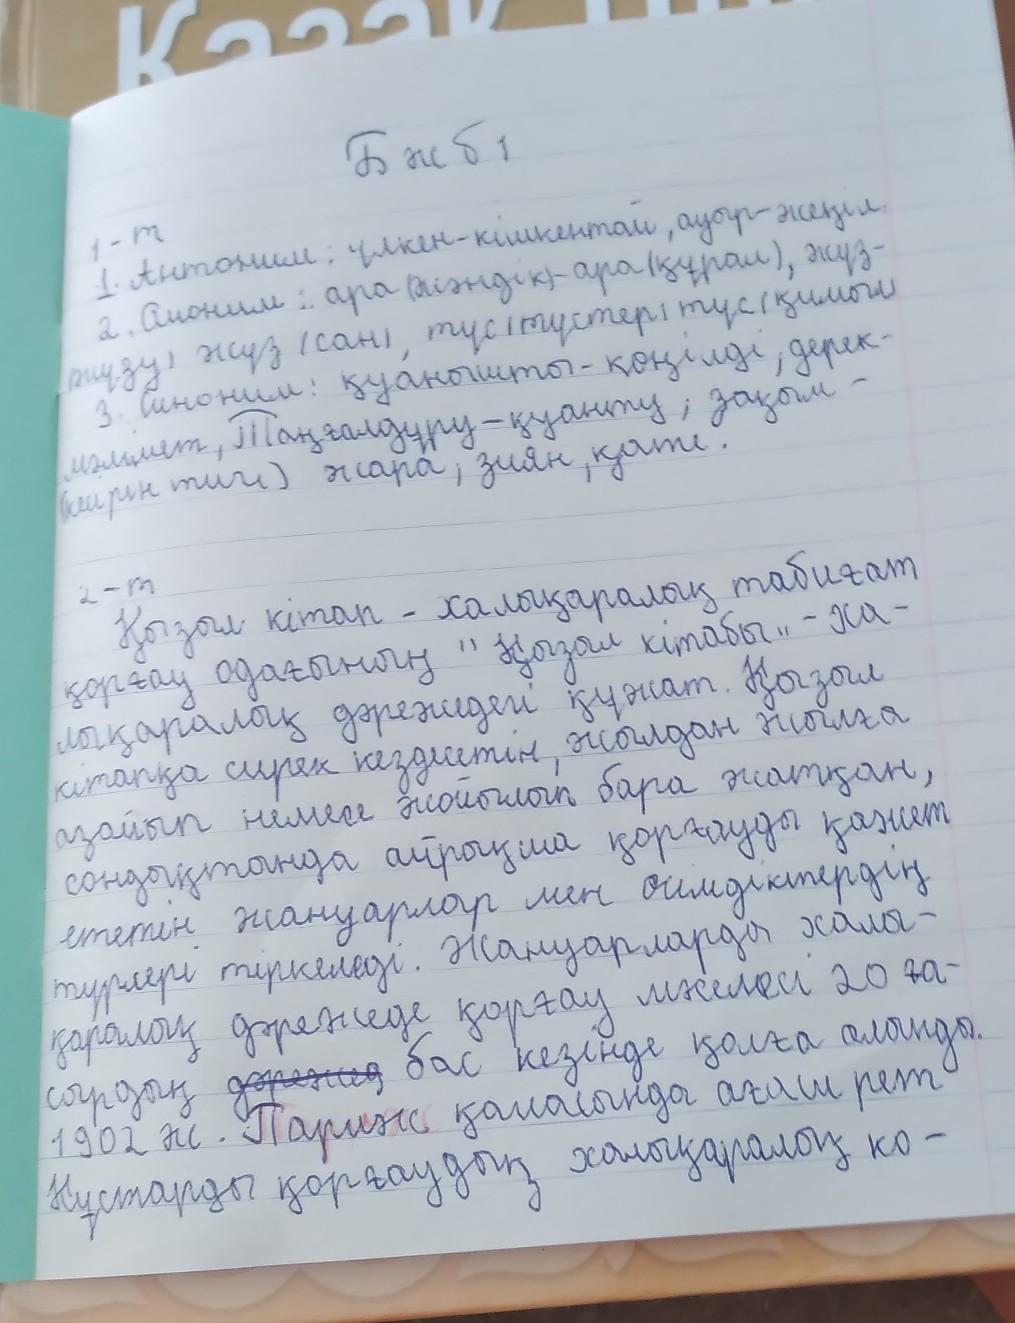 Қазақ
БЖБ 1
1-т
1. Антоним: үлкен-кішкентай, ауыр-жеңіл.
2. Омоним: ара (жәндік)-ара (құрал), жүз-
(жүзу) жүз (сан), түс (түстер) түс (қимыл)
3. Синоним: қуанышты-көңілді, дерек-
мәлімет, Таңғалдұру-қуанту, зақым-
(кейін тигі) жара, зиян, қате.
2-т
Қызыл кітап - халықаралық табиғат
қорғау одағының "Қызыл кітабы" - ха-
лықаралық дәрежедегі құжат. Қызыл
кітапқа сирек кездесетін, жылдан жылға
азайып немесе жойылып бара жатқан,
сондықтанда айрықша қорғауды қажет
ететін жануарлар мен өсімдіктердің
түрлері тіркеледі. Жануарларды халы-
қаралық дәрежеде қорғау мәселесі 20 ға-
сырдың дәрежед бас кезінде қолға алынды.
1902 ж. Париж қаласында ағаш рет
Құстарды қорғаудың халықаралық ко-